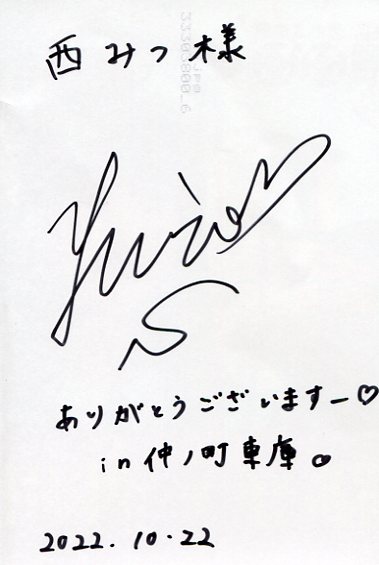 西みつ様
ありがとうございますー♡
in 仲ノ町車庫。
2022.10.22